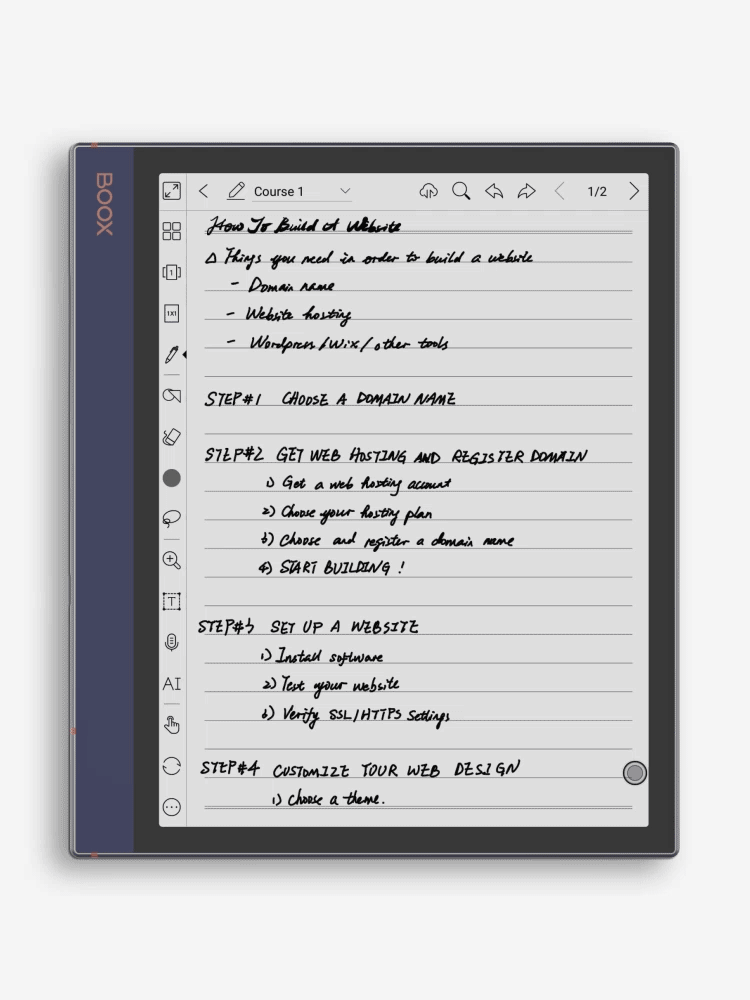 BOOX
Course 1
1/2
How To Build A Website
△ Things you need in order to build a website
- Domain name
- Website hosting
- Wordpress/Wix/other tools
STEP#1 CHOOSE A DOMAIN NAME
STEP#2 GET WEB HOSTING AND REGISTER DOMAIN
1) Get a web hosting account
2) Choose your hosting plan
3) Choose and register a domain name
4) START BUILDING!
STEP#3 SET UP A WEBSITE
1) Install software
2) Test your website
3) Verify SSL/HTTPS Settings
STEP#4 CUSTOMIZE YOUR WEB DESIGN
1) Choose a theme.
1
1x1
T
AI